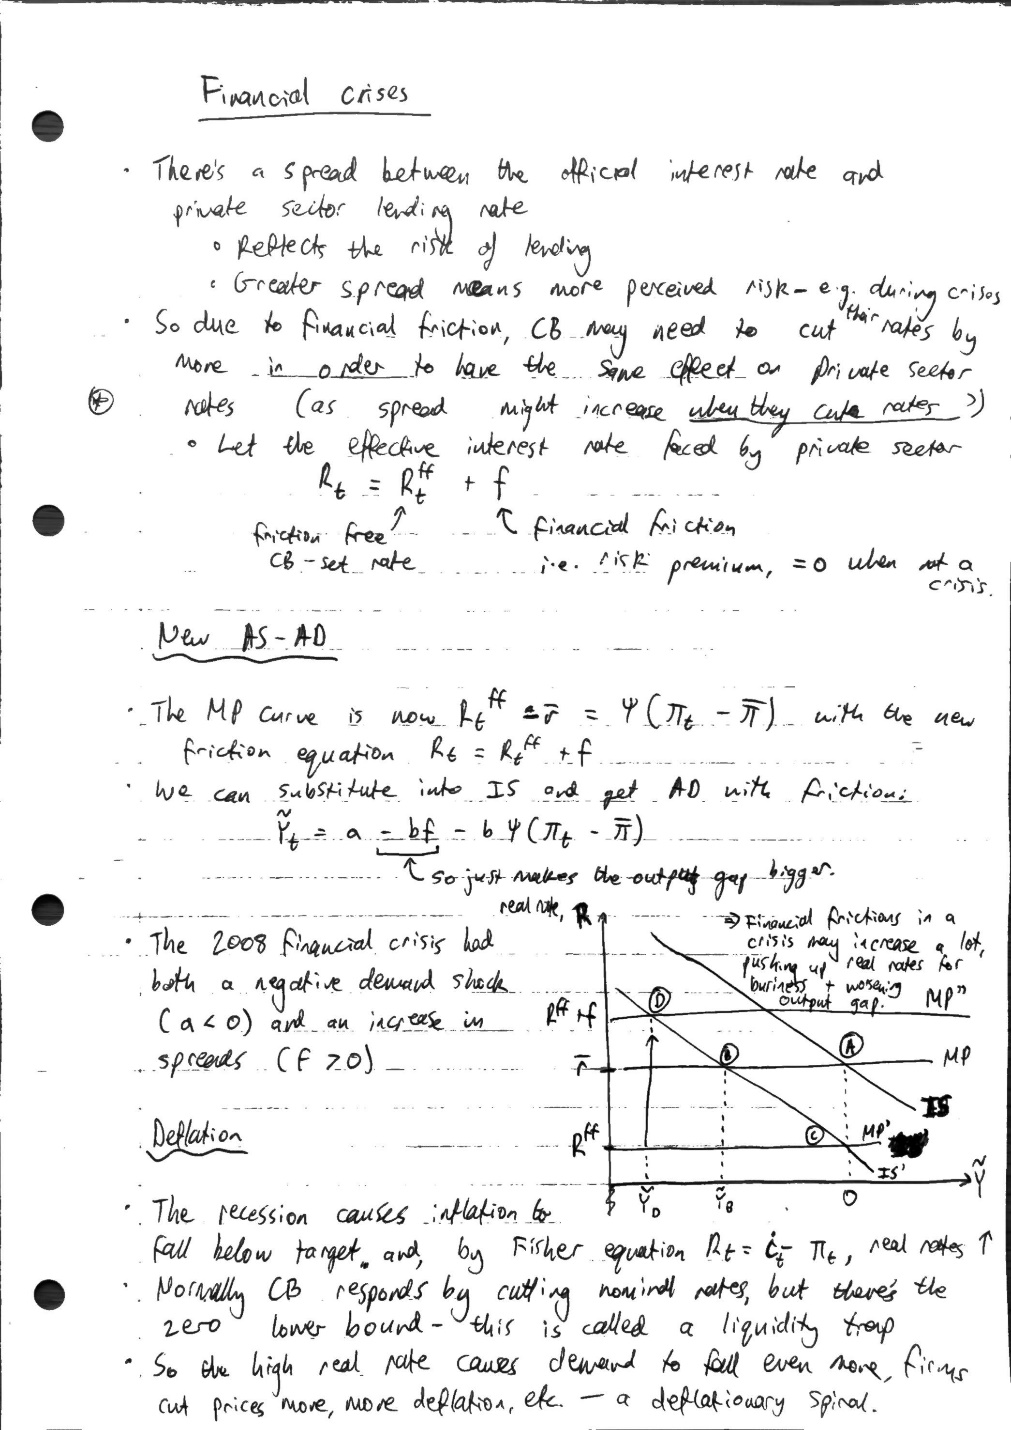 Financial crises
· There's a spread between the official interest rate and
private sector lending rate
∘ Reflects the risk of lending
∘ Greater spread means more perceived risk - e.g. during crises
· So due to financial friction, CB may need to cut their rates by
more in order to have the same effect on private sector
rates (as spread might increase when they cut rates ?)
∘ Let the effective interest rate faced by private sector
R_t = R_t^ff + f
friction free
CB-set rate
financial friction
i.e. risk premium, = 0 when not a
crisis.
New AS-AD
· The MP curve is now R_t^ff - r̄ = Ψ(π_t - π̄) with the new
friction equation R_t = R_t^ff + f
· We can substitute into IS and get AD with friction:
Ỹ_t = a - bf - bΨ(π_t - π̄)
↑ so just makes the output gap bigger.
· The 2008 financial crisis had
both a negative demand shock
(a < 0) and an increase in
spreads (f > 0)
real rate, R
⇒ Financial frictions in a
crisis may increase a lot,
pushing up real rates for
business + wosening
output gap.
MP"
R^ff + f
D
r̄
B
A
MP
IS
R^ff
C
MP'
IS'
Ỹ_D
Ỹ_B
0
Ỹ
Deflation
· The recession causes inflation to
fall below target. and, by Fisher equation R_t = i_t - π_t, real rates ↑
· Normally CB responds by cutting nominal rates, but there's the
zero lower bound - this is called a liquidity trap
· So the high real rate causes demand to fall even more, firms
cut prices more, more deflation, etc. — a deflationary spiral.